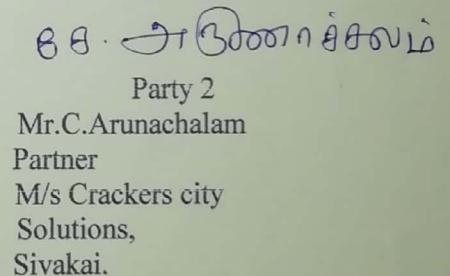 சே. அருணாச்சலம்
Party 2
Mr.C.Arunachalam
Partner
M/s Crackers city
Solutions,
Sivakai.